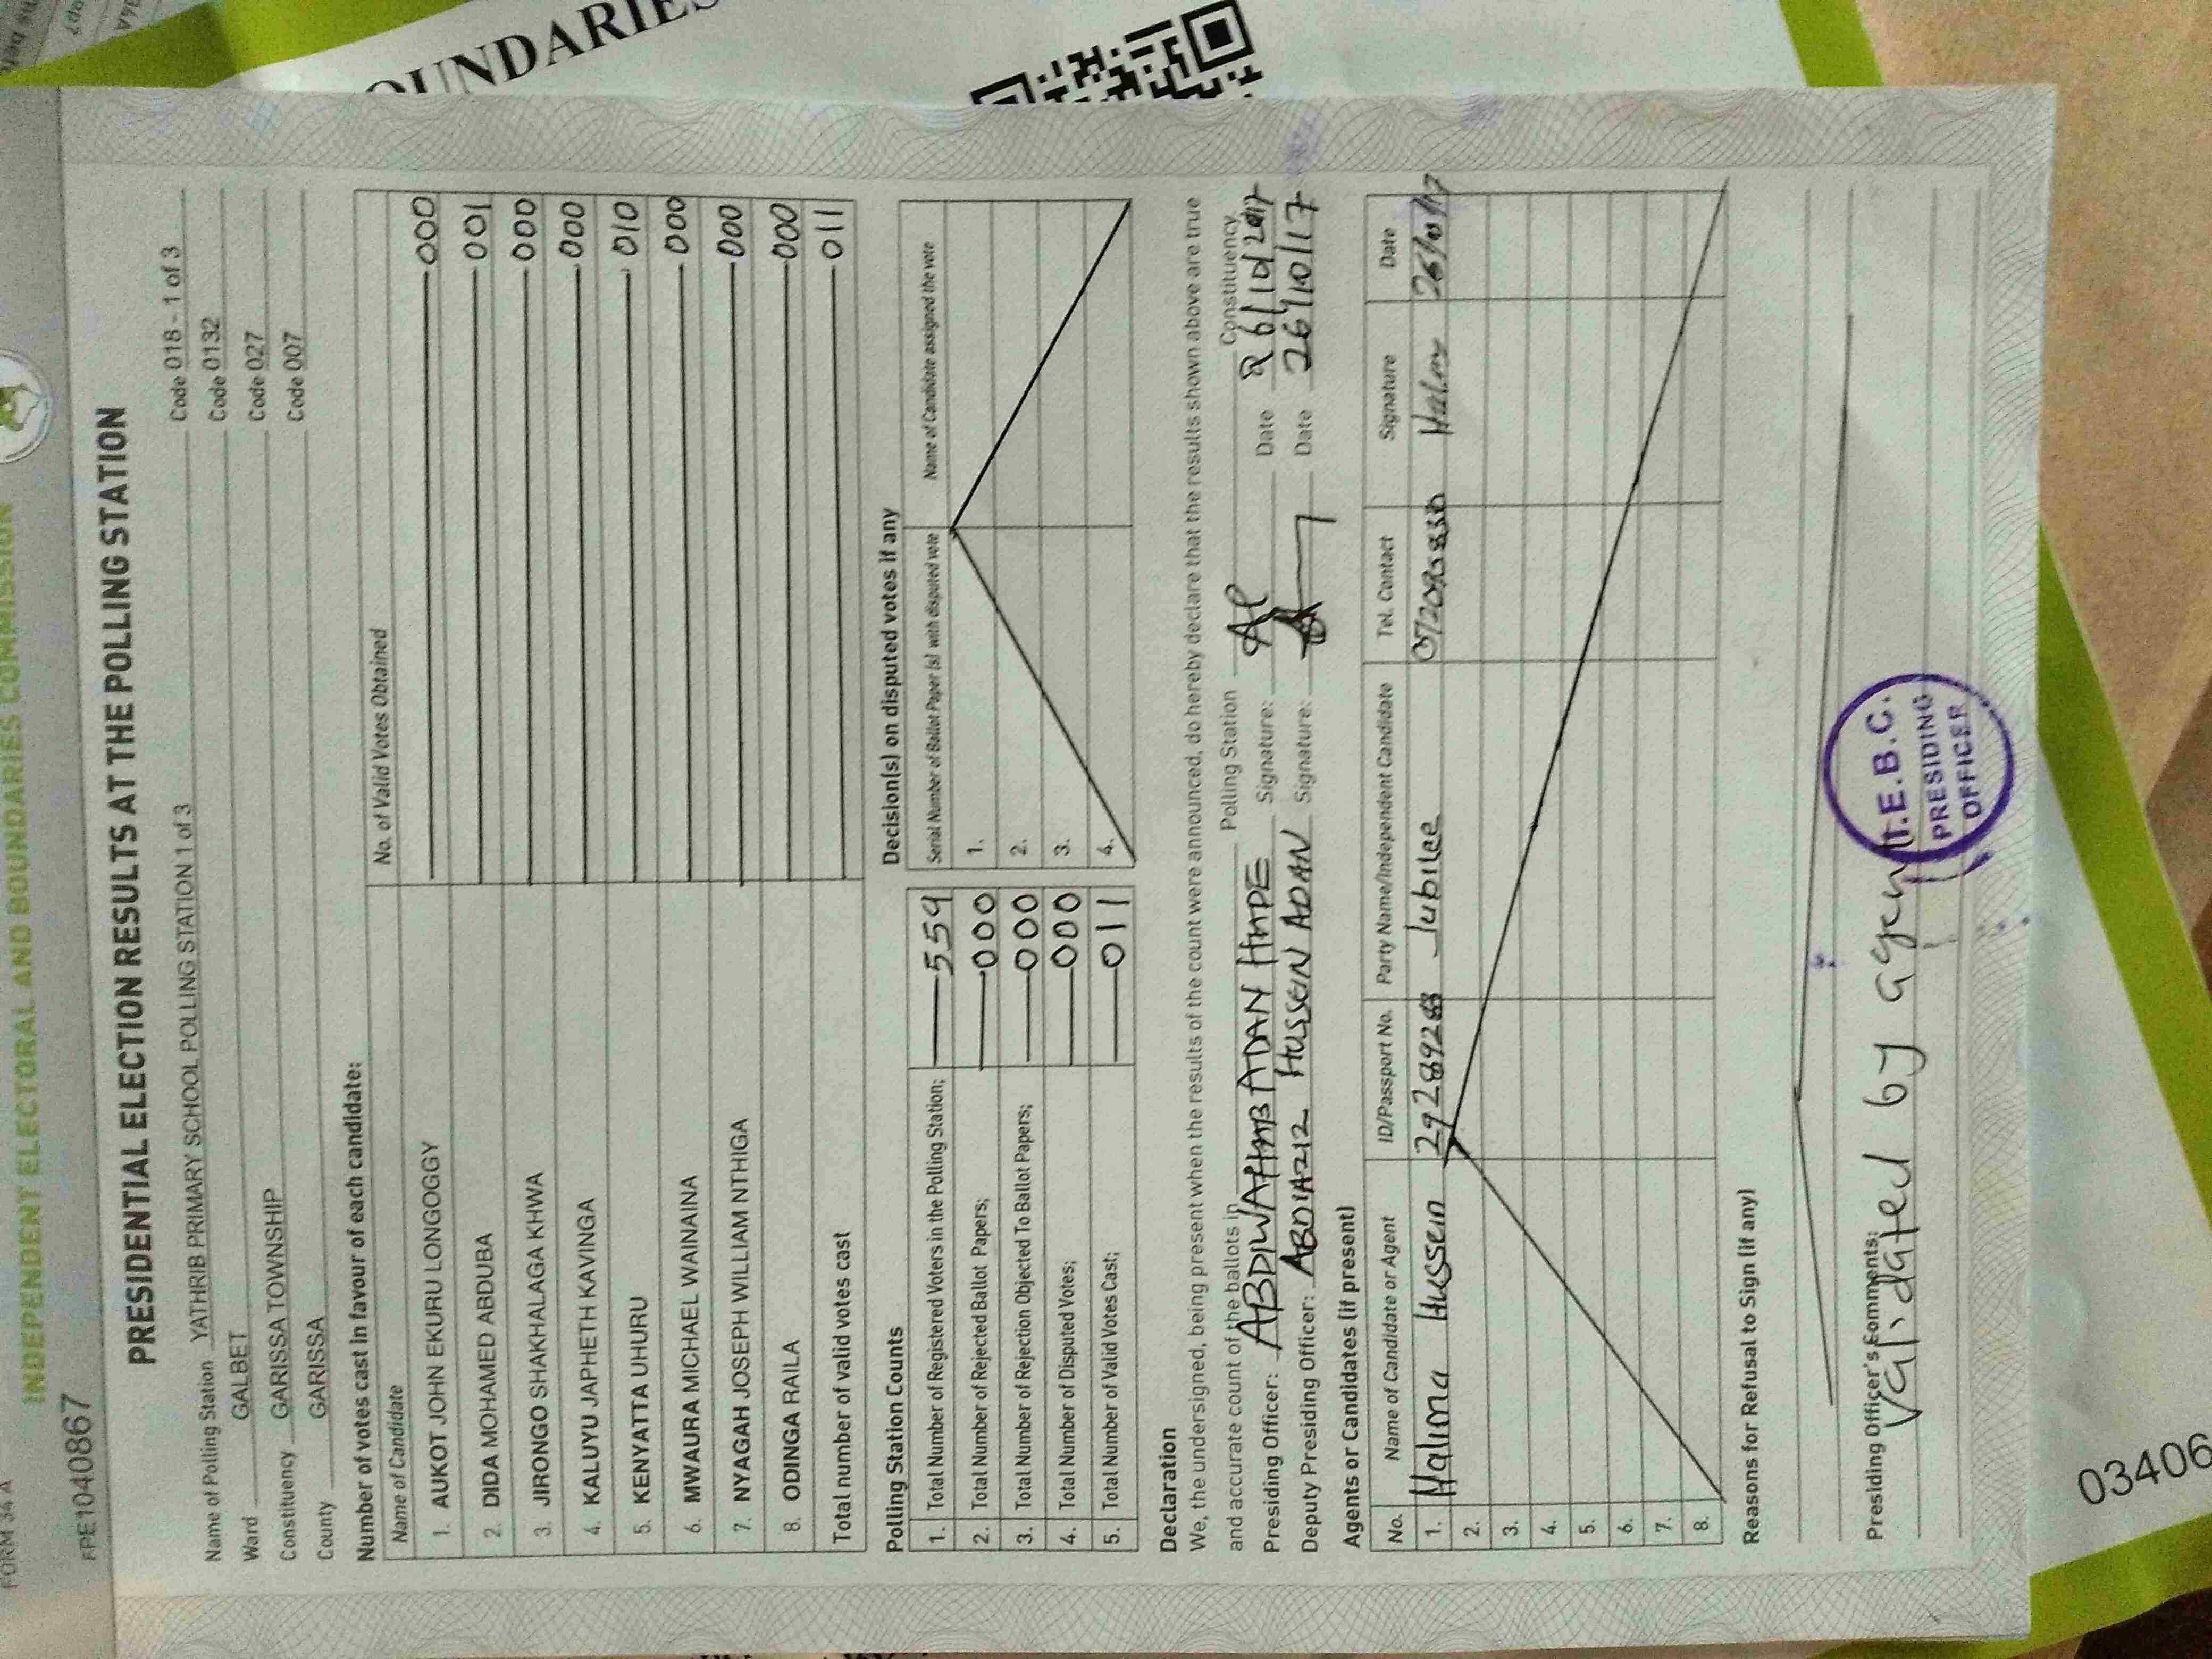 OUNDARIES
FORM 34 A
INDEPENDENT ELECTORAL AND BOUNDARIES COMMISSION
FPE1040867
PRESIDENTIAL ELECTION RESULTS AT THE POLLING STATION
Name of Polling Station YATHRIB PRIMARY SCHOOL POLLING STATION 1 of 3 Code 018 - 1 of 3
Ward GALBET Code 0132
Constituency GARISSA TOWNSHIP Code 027
County GARISSA Code 007
Number of votes cast in favour of each candidate:
Name of Candidate No. of Valid Votes Obtained
1. AUKOT JOHN EKURU LONGOGGY 000
2. DIDA MOHAMED ABDUBA 001
3. JIRONGO SHAKHALAGA KHWA 000
4. KALUYU JAPHETH KAVINGA 000
5. KENYATTA UHURU 010
6. MWAURA MICHAEL WAINAINA 000
7. NYAGAH JOSEPH WILLIAM NTHIGA 000
8. ODINGA RAILA 000
Total number of valid votes cast 011
Polling Station Counts
1. Total Number of Registered Voters in the Polling Station; 559
2. Total Number of Rejected Ballot Papers; 000
3. Total Number of Rejection Objected To Ballot Papers; 000
4. Total Number of Disputed Votes; 000
5. Total Number of Valid Votes Cast; 011
Decision(s) on disputed votes if any
Serial Number of Ballot Paper (s) with disputed vote Name of Candidate assigned the vote
1.
2.
3.
4.
Declaration
We, the undersigned, being present when the results of the count were announced, do hereby declare that the results shown above are true
and accurate count of the ballots in Polling Station Constituency
Presiding Officer: ABDIWAHAB ADAN Signature: Date 26/10/2017
Deputy Presiding Officer: ABDIAZIZ HUSSEIN ADAN Signature: Date 26/10/17
Agents or Candidates (if present)
No. Name of Candidate or Agent ID/Passport No. Party Name/Independent Candidate Tel. Contact Signature Date
1. Halima Hussein Jubilee 26/10/17
2.
3.
4.
5.
6.
7.
8.
Reasons for Refusal to Sign (if any)
Presiding Officer's Comments:
Validated by agent
I.E.B.C.
PRESIDING
OFFICER
03406